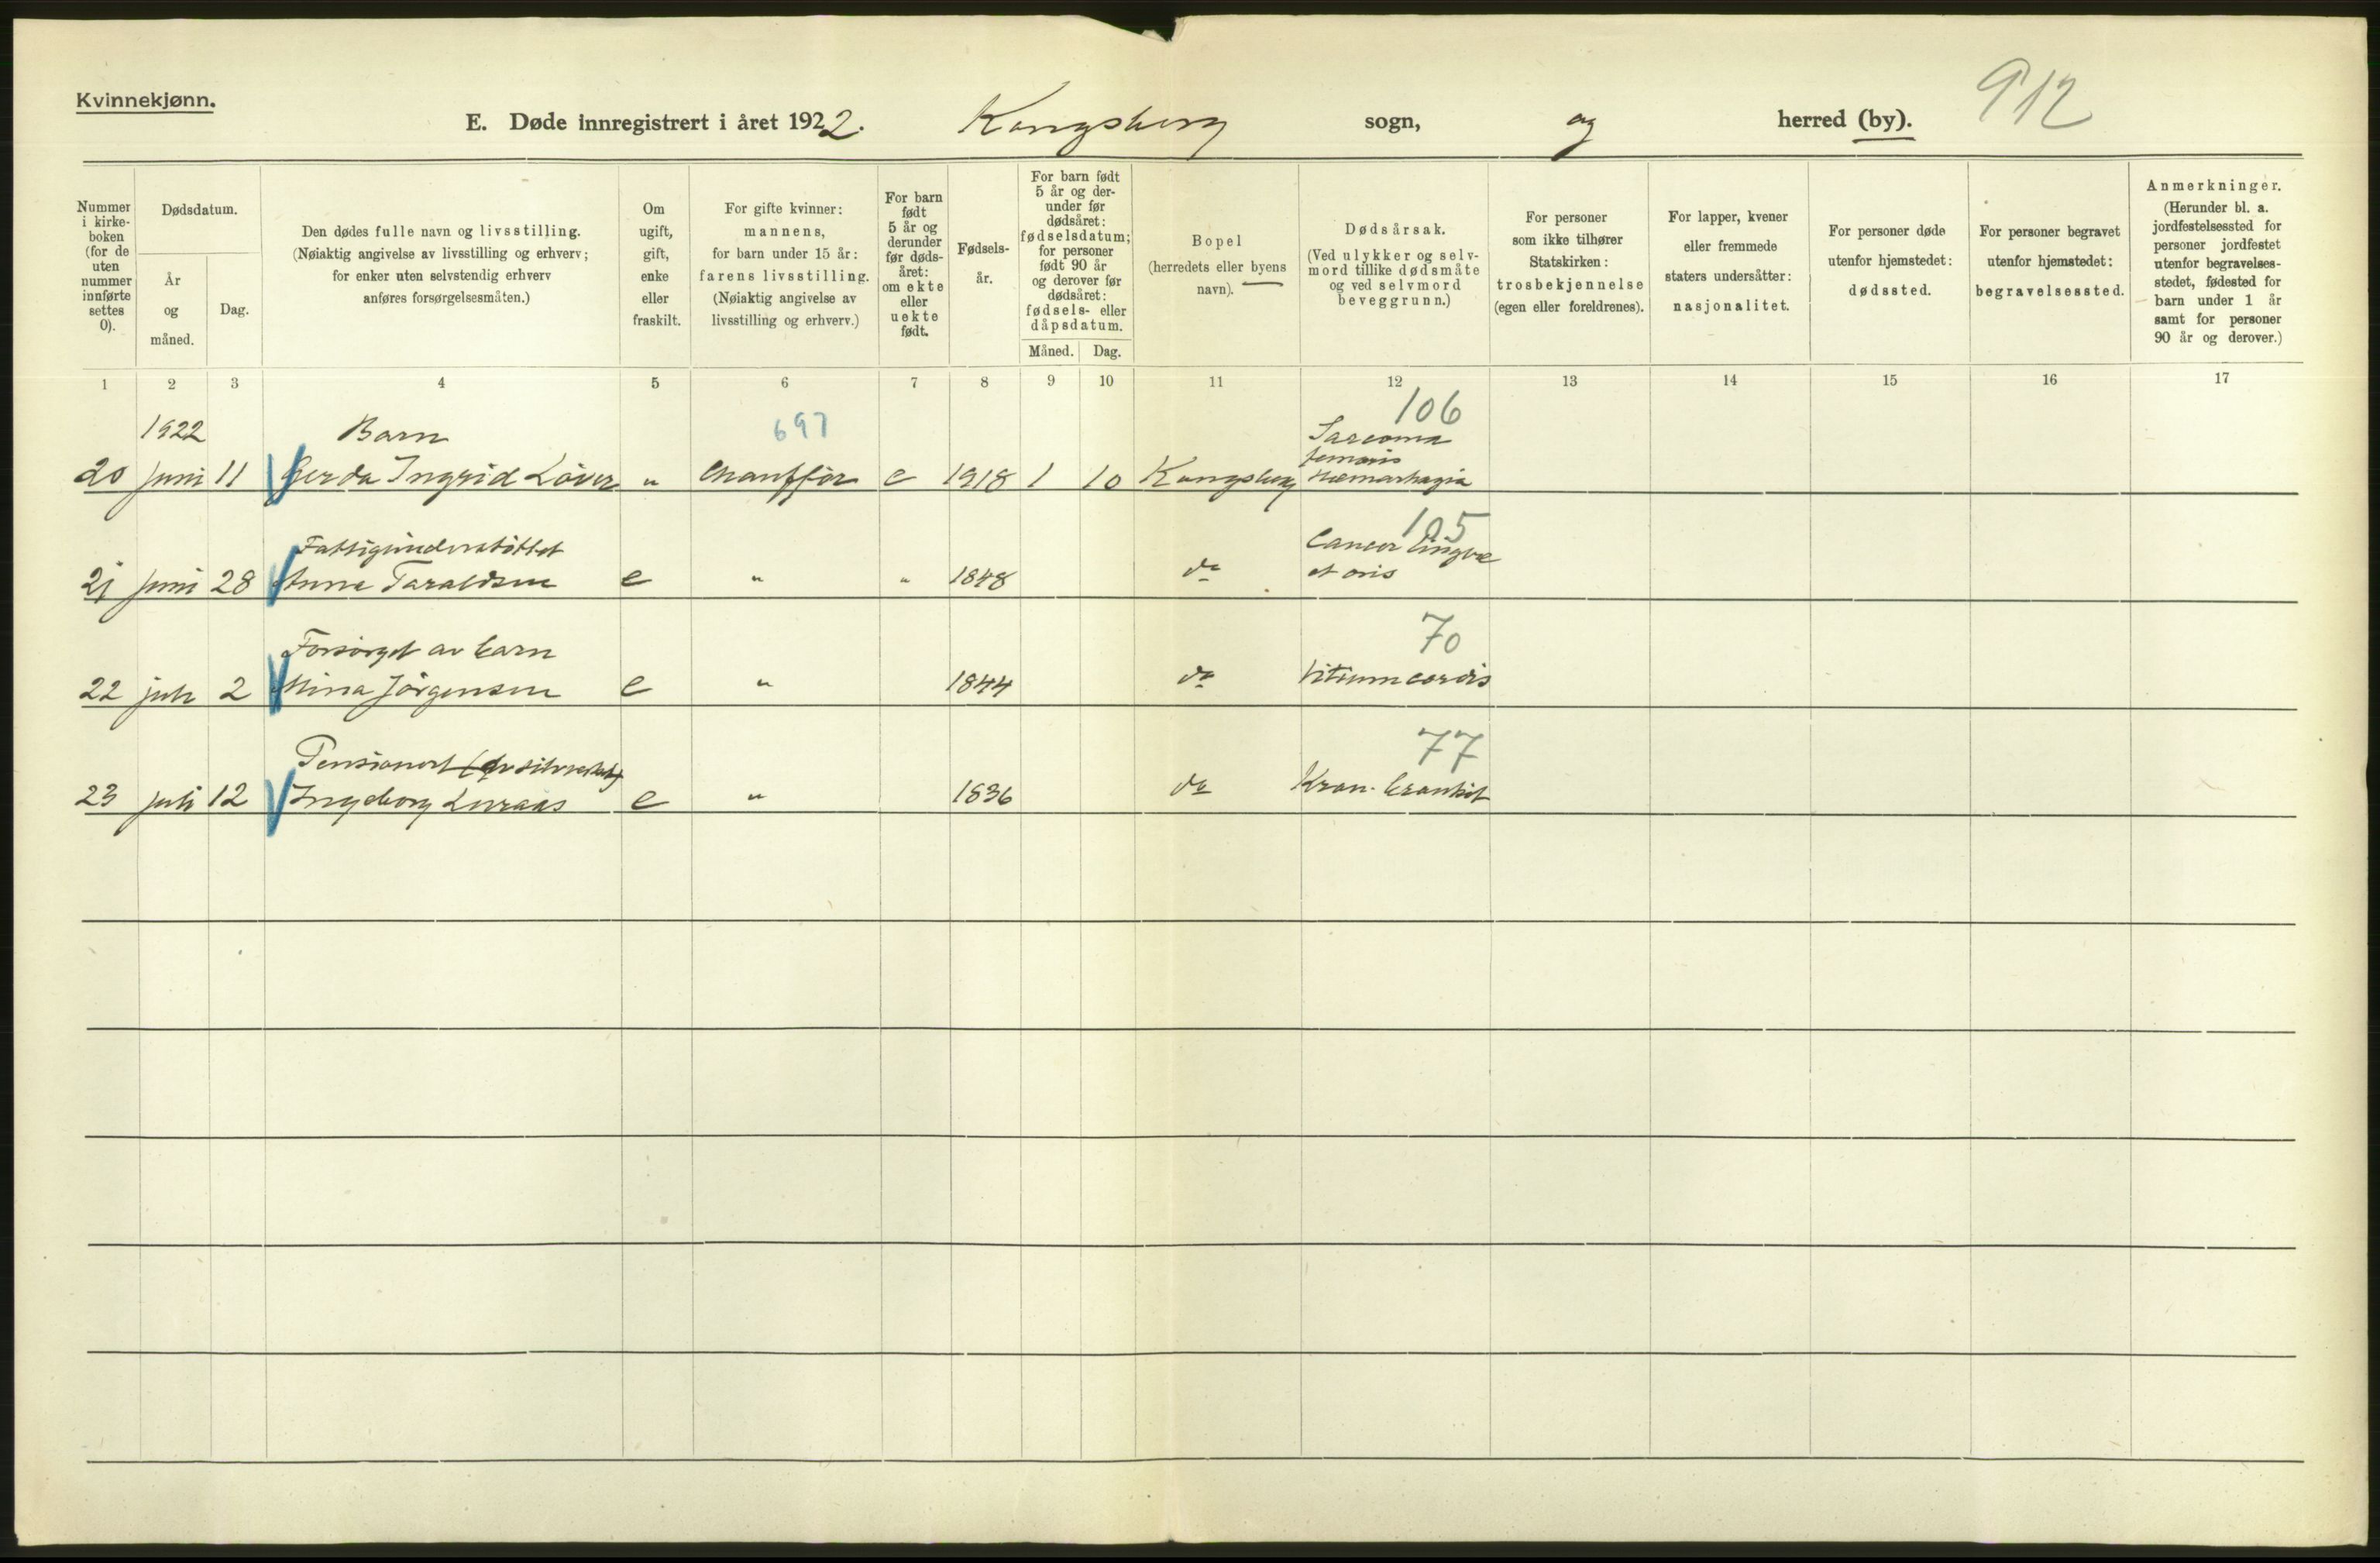 Kvinnekjønn.
912
E. Døde innregistrert i året 1922. Kongsberg sogn, og herred (by).
Nummer i kirke-boken (for de uten nummer innførte settes 0).
Dødsdatum.
År og måned.
Dag.
Den dødes fulle navn og livsstilling.
(Nøiaktig angivelse av livsstilling og erhverv;
for enker uten selvstendig erhverv
anføres forsørgelsesmåten.)
Om
ugift,
gift,
enke
eller
fraskilt.
For gifte kvinner:
mannens,
for barn under 15 år:
farens livsstilling.
(Nøiaktig angivelse av
livsstilling og erhverv.)
For barn
født
5 år og
derunder
før døds-
året:
om ekte
eller
uekte
født.
Fødsels-
år.
For barn født
5 år og der-
under før
dødsåret:
fødselsdatum;
for personer
født 90 år
og derover før
dødsåret:
fødsels- eller
dåpsdatum.
Måned. Dag.
Bopel
(herredets eller byens
navn).
Dødsårsak.
(Ved ulykker og selv-
mord tillike dødsmåte
og ved selvmord
beveggrunn.)
For personer
som ikke tilhører
Statskirken:
trosbekjennelse
(egen eller foreldrenes).
For lapper, kvener
eller fremmede
staters undersåtter:
nasjonalitet.
For personer døde
utenfor hjemstedet:
dødssted.
For personer begravet
utenfor hjemstedet:
begravelsessted.
Anmerkninger.
(Herunder bl. a.
jordfestelsessted for
personer jordfestet
utenfor begravelses-
stedet, fødested for
barn under 1 år
samt for personer
90 år og derover.)
1 2 3 4 5 6 7 8 9 10 11 12 13 14 15 16 17
1922 Barn 697 106
Sarcoma
femoris
20 juni 11 Gerda Ingrid Løver " Chauffør e 1918 1 10 Kongsberg Hæmorrhagia
105
Fattigunderstøttet Cancer lingvæ
21 juni 28 Anne Taraldsen e " " 1848 do et oris
70
Forsørget av barn
22 juli 2 Mina Jørgensen e " 1844 do Vitium cordis
77
Pensionert
23 juli 12 Ingeborg Luraas e " 1836 do Kron. bronkit